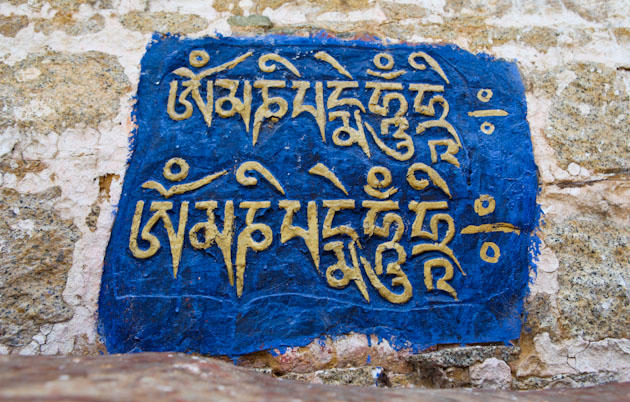 ཨོཾམཎིཔདྨེཧཱུྃཧྲཱི༔
ཨོཾམཎིཔདྨེཧཱུྃཧྲཱི༔